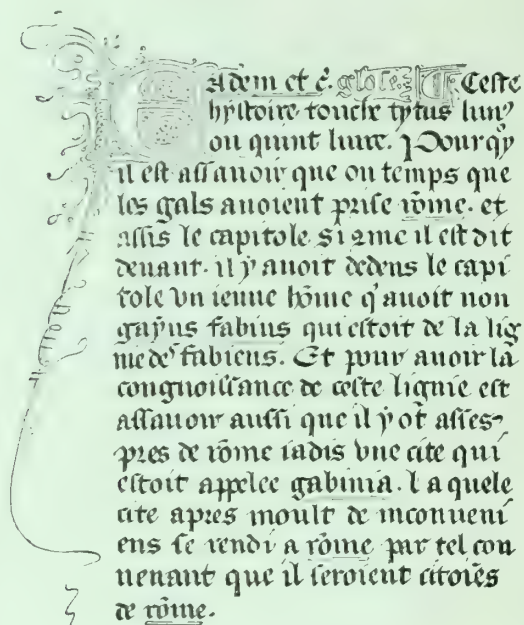 Eadem et c̄. glose. ¶ Ceste
hystoire touche tytus liuiꝰ
ou quint liure. Pour qͥ
il est assauoir que ou temps que
les gals auoient prise rōme. et
assis le capitole. si 2me il est dit
deuant. il y auoit dedens le capi
tole vn ieune hōme q'auoit non
gayus fabius qui estoit de la lig
nie deˢ fabiens. Et pour auoir la
congnoissance de ceste lignie est
assauoir aussi que il y ot asses
pres de rōme iadis vne cite qui
estoit appelee gabinia. Laquele
cite apres moult de inconueni
ens se rendi a rōme par tel con
uenant que il seroient citoiēs
de rōme.